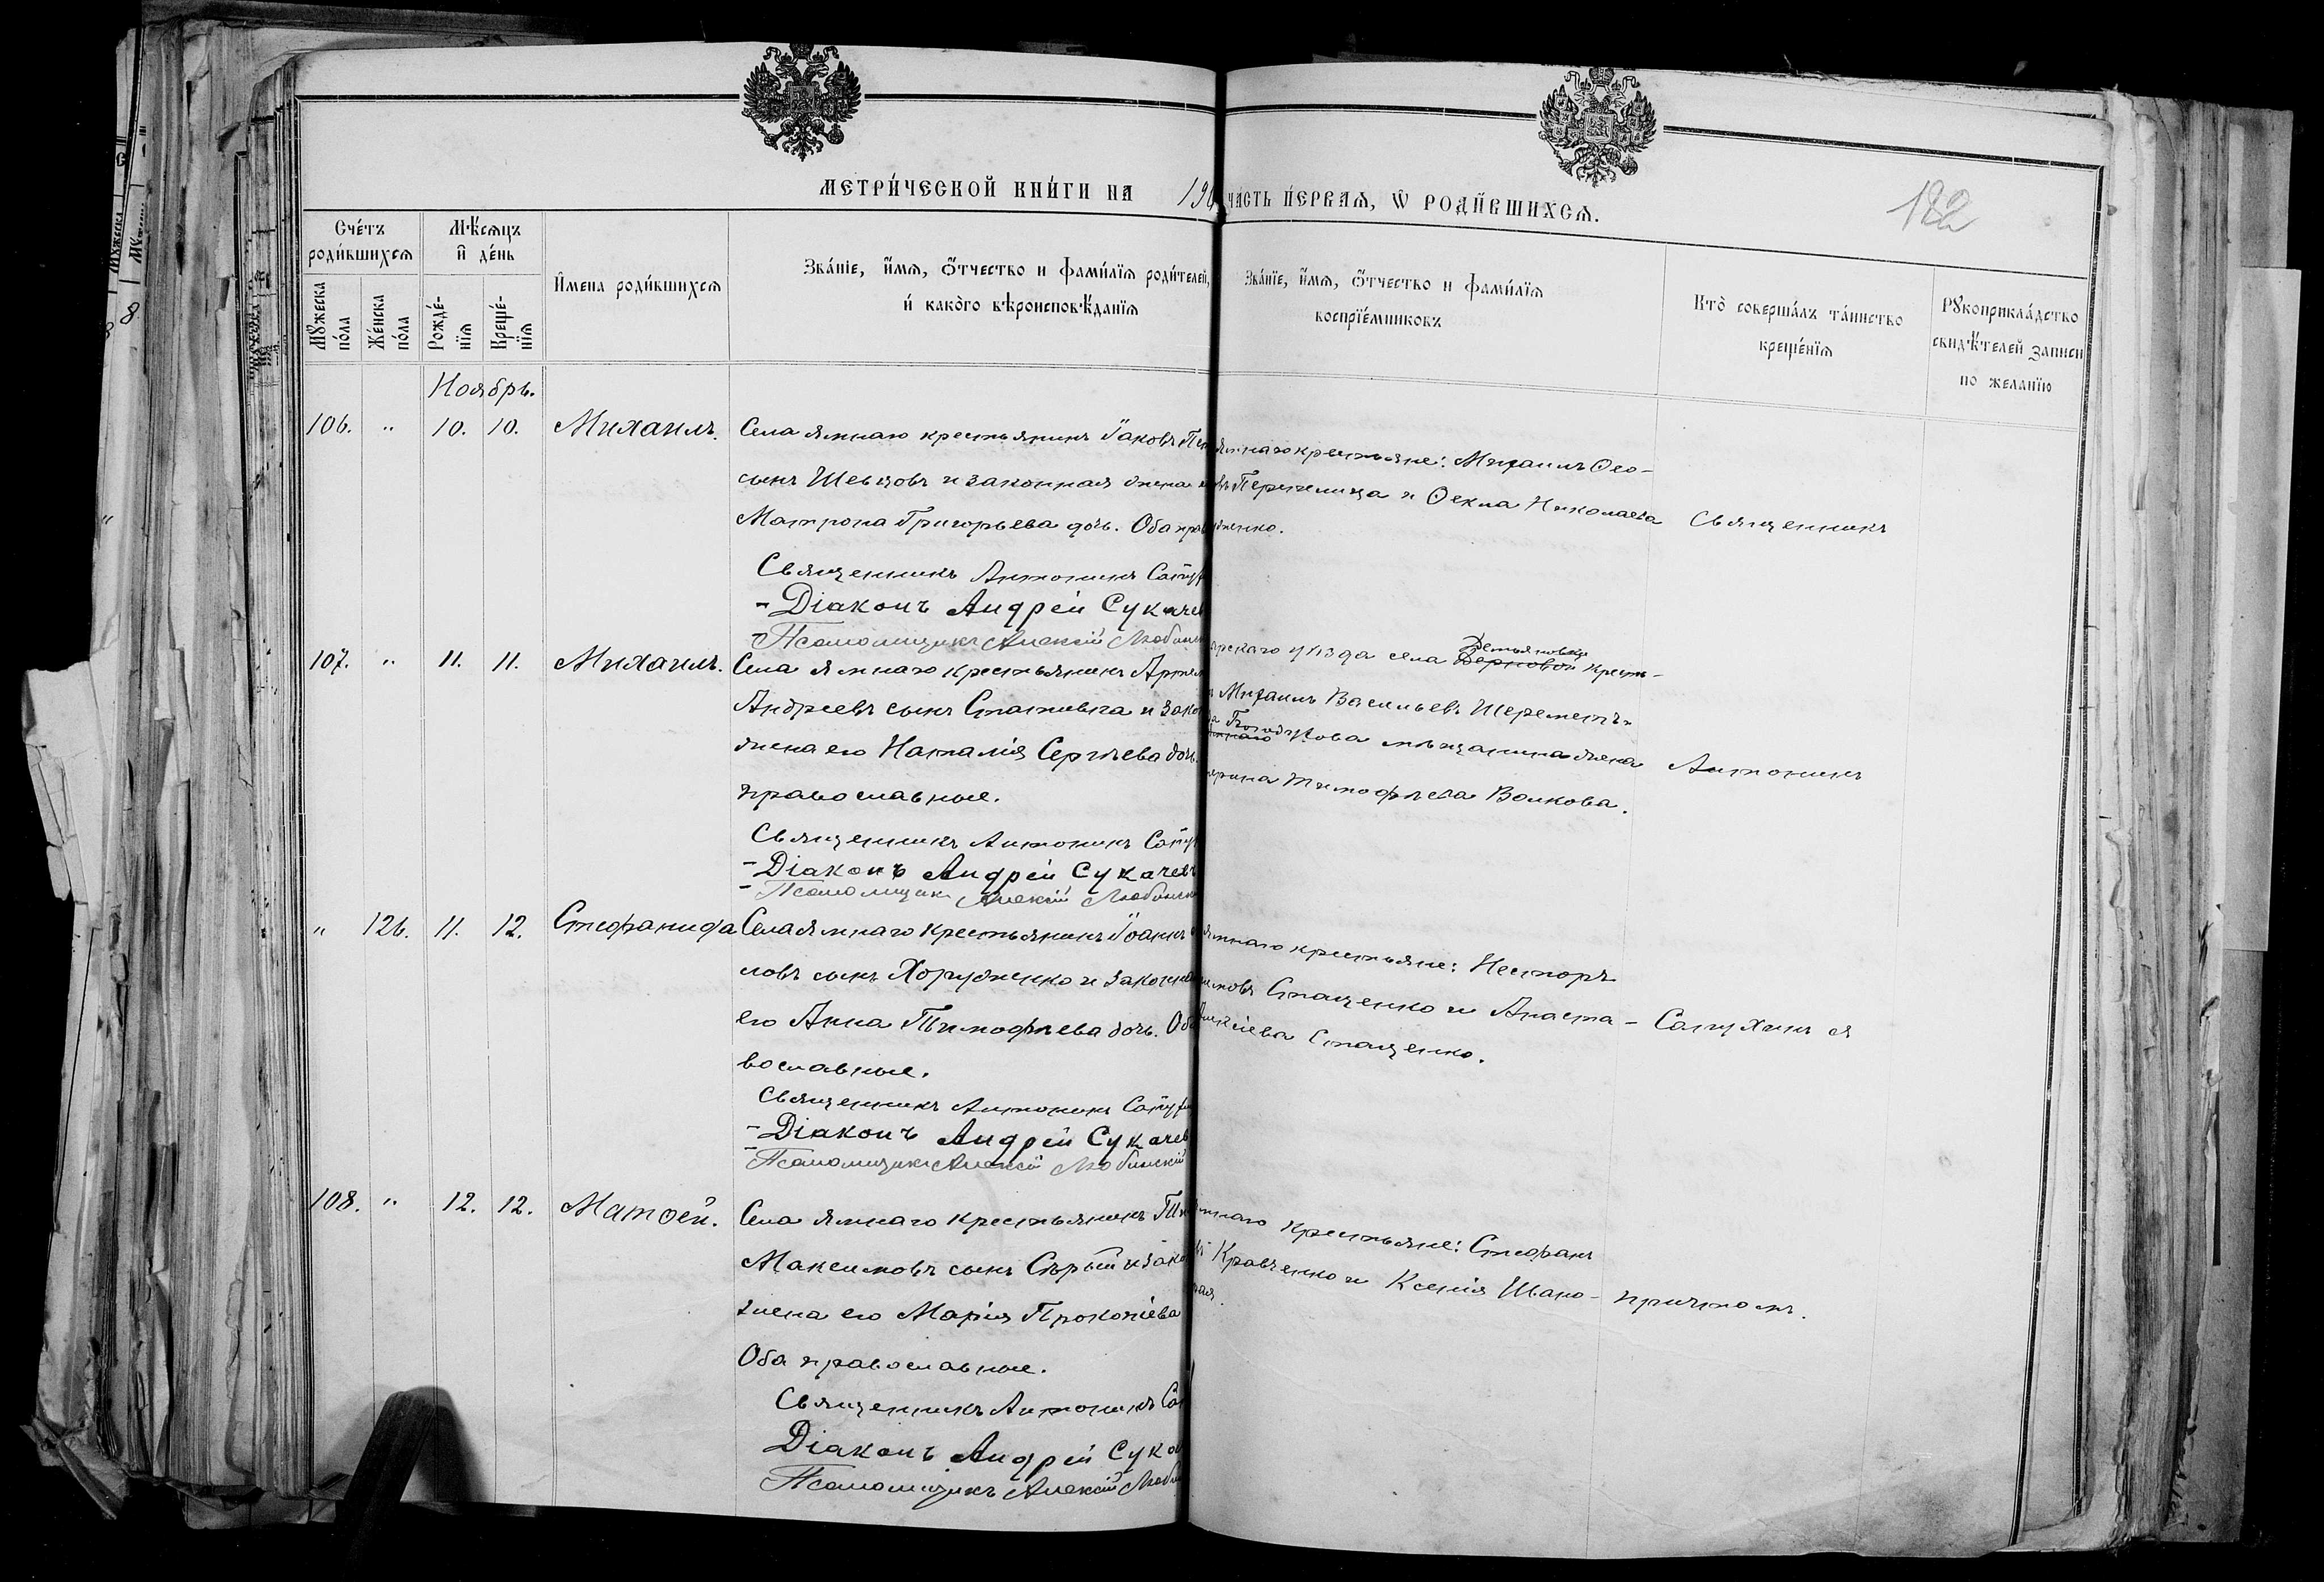 МЕТРИ́ЧЕСКОЙ КНИ́ГИ НА 190
ЧА́СТЬ ПЕ́РВАЯ, Ѡ РОДИ́ВШИХСЯ.
182
Сче́тъ роди́вшихся
Мꙋжеска по́ла
Же́нска по́ла
Мѣ́сяцъ и де́нь
Рожде́нїя
Креще́нїя
И҆мена роди́вшихся
Зва́нїе, и҆́мя, ѻ҆́тчество и фами́лїя роди́телей,
и҆ како́го вѣроисповѣ́данїя
Зва́нїе, и҆́мя, ѻ҆́тчество и фами́лїя
воспрїе́мниковъ
Кто̀ соверша́лъ та́инство
креще́нїя
Рꙋкоприкла́дство
свидѣ́телей записи
по желанїю
Ноябрь.
106. " 10. 10. Михаилъ.
Села Ямнаго крестьянинъ Іаковъ
сынъ Шевцовъ и законная жена
Матрона Григорьева дочь. Оба прав
Священникъ Антонинъ Сапух
Діаконъ Андрей Сукачев
Псаломщикъ Алексій Любинск
Ямнаго крестьяне: Михаилъ Ѳео-
Перепелица и Ѳекла Николаева
женко.
Священникъ
107. " 11. 11. Михаилъ.
Села Ямнаго крестьянинъ Артем
Андреевъ сынъ Стативка и зако
жена его Наталія Сергѣева дочь.
православные.
Священникъ Антонинъ Сапух
Діаконъ Андрей Сукачевъ
Псаломщикъ Алексій Любинск
уѣзда села Демьяновки кресть-
Михаилъ Васильевъ Шереметъ и
Богодухова мѣщанина жена
Тимофѣева Волкова.
Антонинъ
" 126. 11. 12. Стефанида
Села Ямнаго крестьянинъ Іоаннъ
ловъ сынъ Хоружненко и законна
его Анна Тимофѣева дочь. Оба
вославные.
Священникъ Антонинъ Сапух
Діаконъ Андрей Сукачев
Псаломщикъ Алексій Любинскій
Ямнаго крестьяне: Несторъ
Стаценко и Анаста-
Алексіева Стаценко.
Сапухинъ съ
108. " 12. 12. Матѳей.
Села Ямнаго крестьянинъ
Максимовъ сынъ Сѣрый и зако
жена его Марія Прокопіева
Оба православные.
Священникъ Антонинъ Са
Діаконъ Андрей Сука
Псаломщикъ Алексій Люби
крестьяне: Стефанъ
Кравченко и Ксенія Шапо-
вая.
причтомъ.